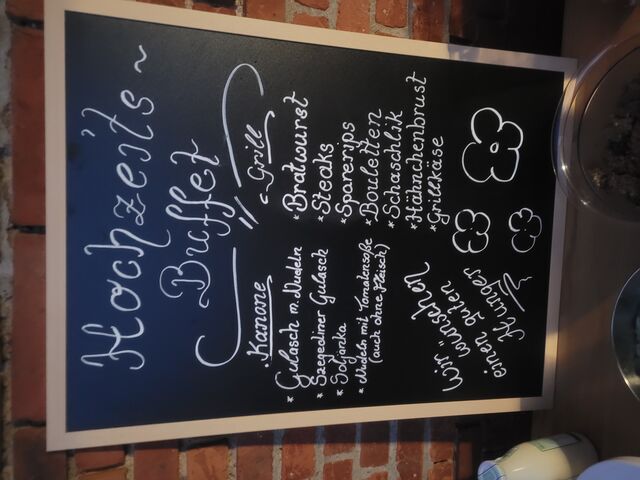 Hochzeits ~
Buffet
Kanone
* Gulasch m. Nudeln
* Szegediner Gulasch
* Soljanka
* Nudeln mit Tomatensoße
(auch ohne Fleisch)
Grill
* Bratwurst
* Steaks
* Sparerips
* Bouletten
* Schaschlik
* Hähnchenbrust
* Grillkäse
Wir wünschen
einen guten
Hunger